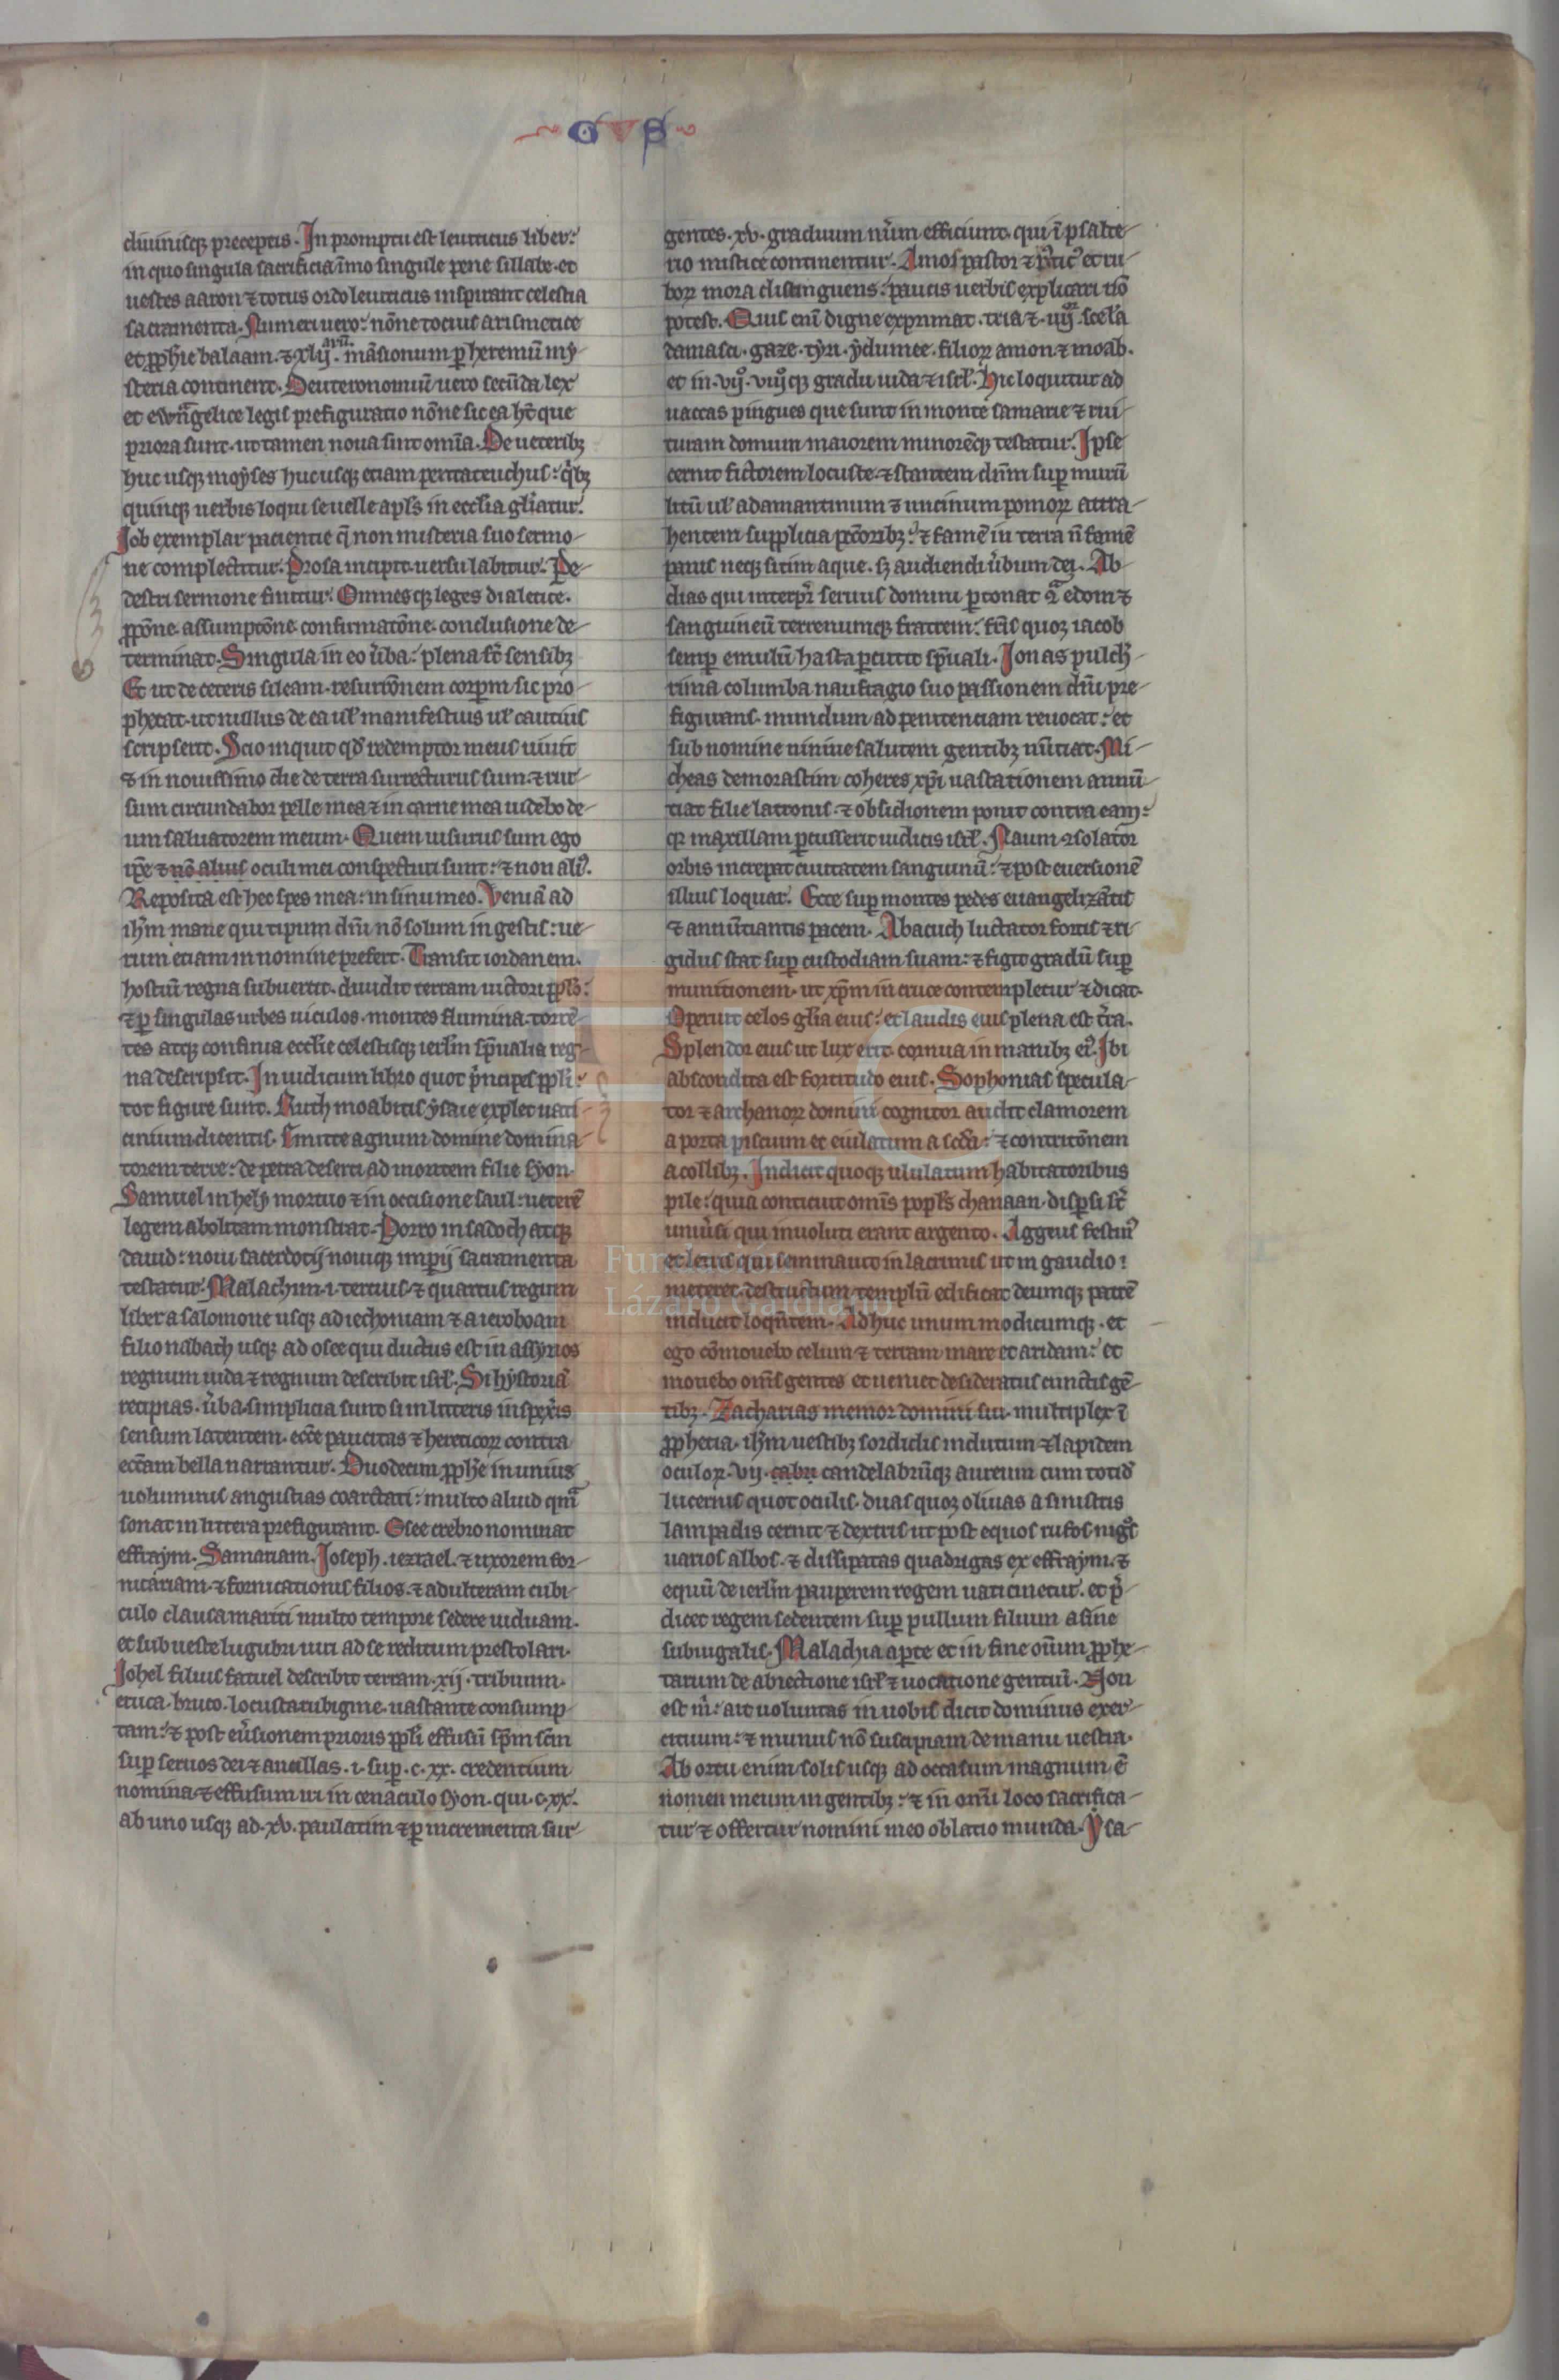 GVS
diuinisqꝫ preceptis. In promptu est leuiticus liber:
in quo singula sacrificia īmo singule pene sillabe. et
uestes aaron ⁊ totus ordo leuiticus inspirant celestia
sacramenta. Numeri uero: nōne tocius arismetice
et ꝓphīe balaam. ⁊ xlij. māsionum ꝑ heremū my-
steria continent. Deuteronomiū uero secūda lex
et ewāgelice legis prefiguratio nōne sic ea hт̄ que
priora sunt. ut tamen noua sint omīa. De ueteribꝫ
huc usqꝫ moyses huc usqꝫ etiam pentateuchus: qͥbꝫ
quinqꝫ uerbis loqui se uelle apl̄s in ecclīa gl̄iatur.
Job exemplar pacientie q̄ non misteria suo sermo-
ne complectitur. Prosa incipit. uersu labitur. Pe-
destri sermone finitur. Omnesqꝫ leges dialetice.
ꝓpōne. assumptōne. confirmatōne. conclusione de-
terminat. Singula in eo ūba: plena sт̄ sensibꝫ
Et ut de ceteris sileam. resurtōnem corpꝝm sic pro-
phetat. ut nullus de ea uł manifestius uł cautius
scripserit. Scio inquit qđ redemptor meus uiuit
⁊ in nouissimo die de terra surrecturus sum. ⁊ rur-
sum circundabor pelle mea ⁊ in carne mea uidebo de-
um saluatorem meum. Quem uisurus sum ego
ip̄e ⁊ nō alius oculi mei conspecturi sunt: ⁊ non aliꝰ.
Reposita est hec spes mea: in sinu meo. Veniā ad
ih̄m naue qui tipum dn̄i nō solum in gestis: ue-
rum etiam in nomine prefert. Transit iordanem.
hostiū regna subuertit. diuidit terram uictori ppl̄o:
⁊ ꝑ singulas urbes uiculos. montes flumina. torrē-
tes atqꝫ confinia ecclīe celestisqꝫ ierl̄m sp̄ualia reg-
na descripsit. In iudicum libro quot pͥncipes ppl̄i:
tot figure sunt. Ruth moabitis ysaie explet uati-
cinium dicentis. Emitte agnum domine domina-
torem terre: de petra deserti ad montem filie syon.
Samuel in hely mortuo ⁊ in occisione saul: ueterē
legem abolitam monstrat. Porro in sadoch atqꝫ
dauid: noui sacerdotij nouiqꝫ imperij sacramenta
testatur. Malachim. i. tertius ⁊ quartus regum
liber a salomone usqꝫ ad iechoniam ⁊ a ieroboam
filio nabath usqꝫ ad osee qui ductus est in assyrios
regnum iuda ⁊ regnum describit isrł. Si hystoriā
recipias. ūba simplicia sunt si in litteris inspexͥis
sensum latentem. eccē paucitas ⁊ hereticoꝝ contra
eccām bella narrantur. Duodecim ꝓphē in unius
uoluminis angustias coarctati: multo aliud qm̄
sonat in littera prefigurant. Osee crebro nominat
effraym. Samariam. Joseph. iezrael. ⁊ uxorem for-
nicariam. ⁊ fornicationis filios. ⁊ adulteram cubi-
culo clausa mariti multo tempore sedere uiduam.
et sub ueste lugubri uiri ad se reditum prestolari.
Johel filius fatuel describit terram. xij. tribuum.
eruca. bruco. locusta rubigine. uastante consump-
tam: ⁊ post eūsionem prioris ppl̄i effusū sp̄m scm̄
suꝑ seruos dei ⁊ ancillas. i. suꝑ. c. xx. credentium
nomina ⁊ effusum iri in cenaculo syon. qui. c. xx.
ab uno usqꝫ ad. xv. paulatim ⁊ ꝑ incrementa sur-
gentes. xv. graduum nūm efficiunt. qui ī psalte-
rio mistice continentur. Amos pastor ⁊ rͣsticꝰ et ru-
boꝝ mora distinguens: paucis uerbis explicari nō
potest. Quis enī digne exprimat. tria ⁊. iiijoͬ. scel̄a
damasci. gaze. tyri. ydumee. filioꝝ amon ⁊ moab.
et in. vijͦ. viijͦqꝫ gradu iuda ⁊ isrł. Hic loquitur ad
uaccas pingues que sunt in monte samarie ⁊ rui-
turam domum maiorem minorēqꝫ testatur. Ipse
cernit fictorem locuste. ⁊ stantem dn̄m suꝑ murū
litū uł adamantinum ⁊ uncinum pomoꝝ attra-
hentem supplicia pctōribꝫ: ⁊ famē in terra n̄ famē
panis neqꝫ sitim aque. sꝫ audiendi ūbum dei. Ab-
dias qui interpͬ seruus domini ꝑtonat q̄ edom ⁊
sanguineū terrenumqꝫ fratrem: fr̄is quoqꝫ iacob
semꝑ emulū hasta ꝑcutit sp̄uali. Jonas pulcħ-
rima columba naufragio suo passionem dn̄i pre-
figurans. mundum ad penitenciam reuocat: et
sub nomine niniue salutem gentibꝫ nūtiat. Mi-
cheas de morastim coheres xp̄i uastationem annū-
tiat filie latronis. ⁊ obsidionem ponit contra eam:
qꝛ maxillam ꝑcusserit iudicis isrł. Naum ꝯsolator
orbis increpat ciuitatem sanguinū: ⁊ post euersionē
illius loquitͬ. Ecce suꝑ montes pedes euangelizātis
⁊ annūtiantis pacem. Abacuch luctator fortis ⁊ ri-
gidus stat suꝑ custodiam suam: ⁊ figit gradū suꝑ
munitionem. ut xp̄m in cruce contempletur ⁊ dicat.
Operuit celos gl̄ia eius: et laudis eius plena est t̄ra.
Splendor eius ut lux erit. cornua in manibꝫ eiꝰ. Ibi
abscondita est fortitudo eius. Sophonias specula-
tor ⁊ archanoꝝ domini cognitor audit clamorem
a porta piscium et eiulatum a scđa: ⁊ contritōnem
a collibꝫ. Indicit quoqꝫ ululatum habitatoribus
pile: quia conticuit omīs popl̄s chanaan. disꝑsi sт̄
uniūsi qui inuoluti erant argento. Aggeus festiuꝰ
et letus qui seminauit in lacrimis ut in gaudio:
meteret. destructum templū edificat deumqꝫ patrē
inducit loquētem. Adhuc unum modicumqꝫ. et
ego cōmouebo celum ⁊ terram mare et aridam: et
mouebo oms̄ gentes et ueniet desideratus cunctis gē-
tibꝫ. Zacharias memor domini sui. multiplex ī
ꝓphetia. ih̄m uestibꝫ sordidis indutum ⁊ lapidem
oculoꝝ. vij. cabu candelabrūqꝫ aureum cum totiđ
lucernis quot oculis. duas quoqꝫ oliuas a sinistris
lampadis cernit ⁊ dextris ut post equos rufos nigͦs
uarios albos. ⁊ dissipatas quadrigas ex effraym. ⁊
equū de ierl̄m pauperem regem uaticinetur. et p̄-
dicet regem sedentem suꝑ pullum filium asine
subiugalis. Malachia aꝑte et in fine oīum ꝓphe-
tarum de abiectione isrł ⁊ uocatione gentiū. Non
est m̄: ait uoluntas in uobis dicit dominus exer-
cituum: ⁊ munus nō suscipiam de manu uestra.
Ab ortu enim solis usqꝫ ad occasum magnum ē
nomen meum in gentibꝫ: ⁊ in omī loco sacrifica-
tur ⁊ offertur nomini meo oblatio munda. Ysa-
FLG
Fundación
Lázaro Galdiano